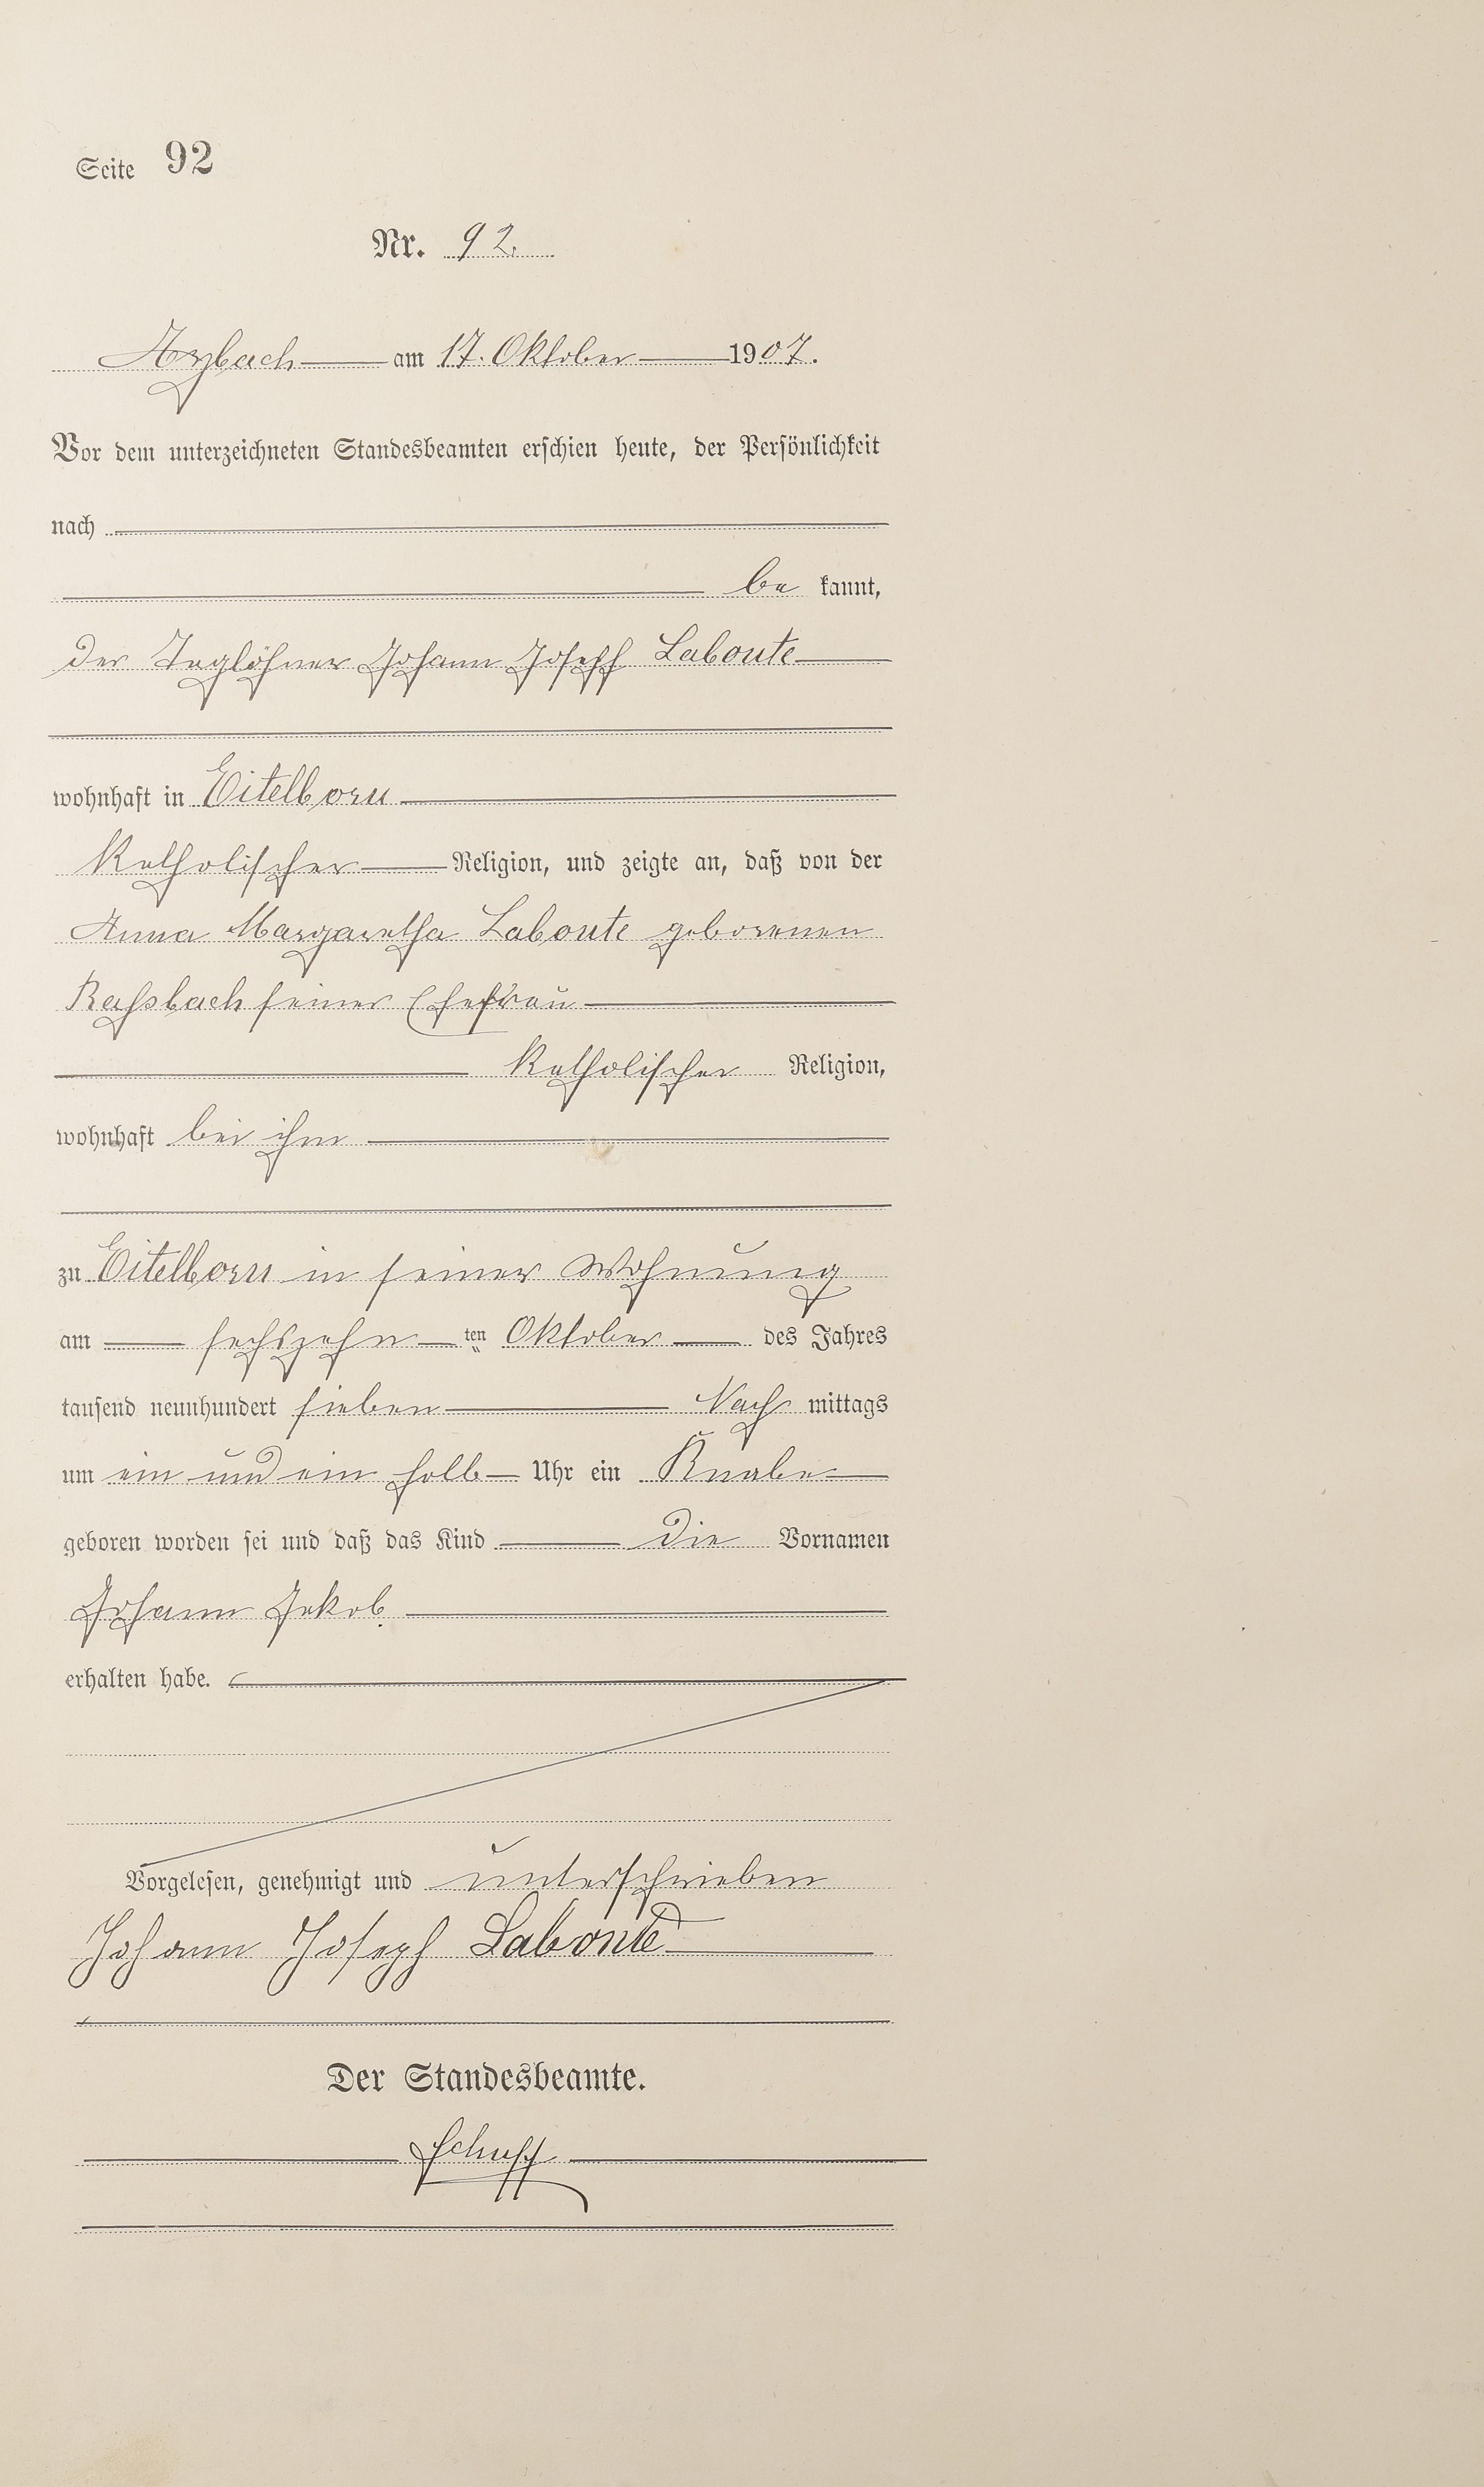 Seite 92
Nr. 92.
Arzbach am 17. Oktober 1907.
Vor dem unterzeichneten Standesbeamten erschien heute, der Persönlichkeit
nach
be kannt,
der Taglöhner Johann Joseph Labonte
wohnhaft in Eitelborn
katholischer Religion, und zeigte an, daß von der
Anna Margaretha Labonte geborenen
seiner Ehefrau
katholischer Religion,
wohnhaft bei ihm
zu Eitelborn in seiner Wohnung
am sechszehn ten Oktober des Jahres
tausend neunhundert sieben Nach mittags
um ein und ein halb Uhr ein Knabe
geboren worden sei und daß das Kind die Vornamen
Johann Jakob
erhalten habe.
Vorgelesen, genehmigt und unterschrieben
Johann Joseph Labonté
Der Standesbeamte.